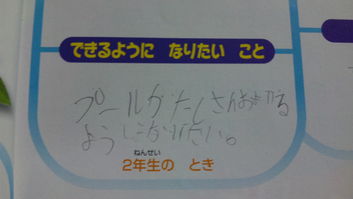 できるように なりたい こと
プールがたくさんおよげる
ようになりたい。
ねんせい
2年生の とき